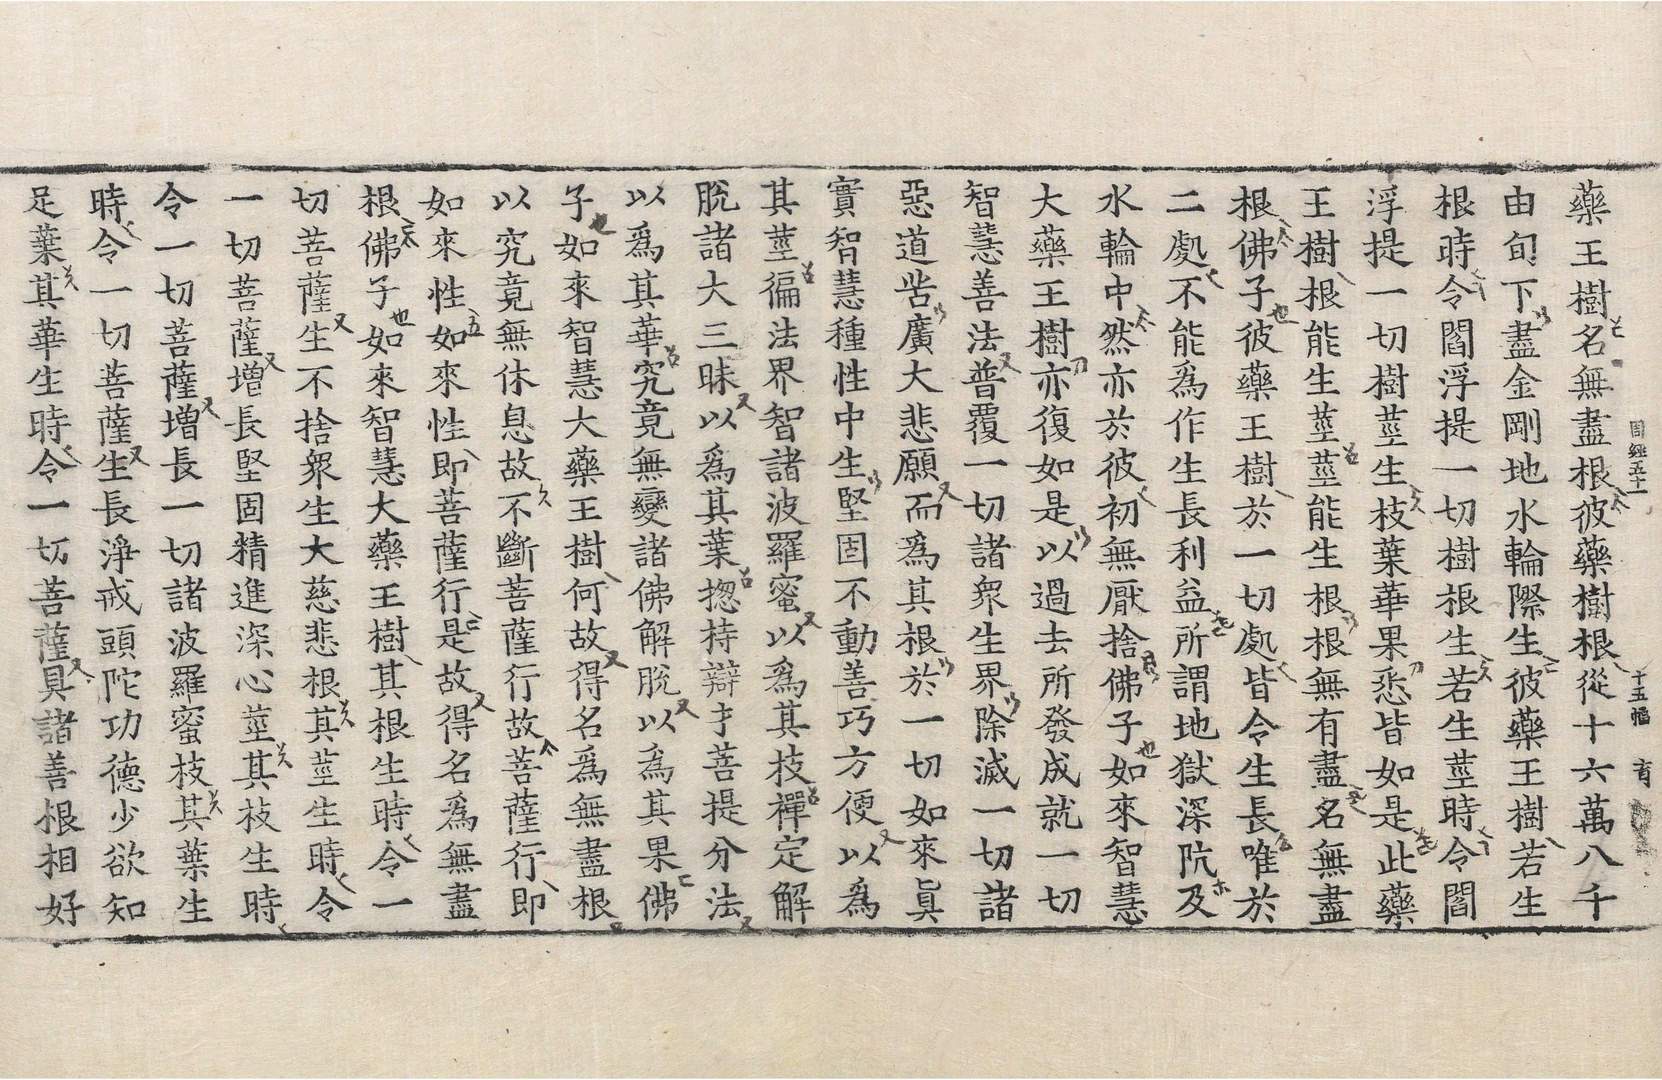 周經五十一 十五幅 育
藥王樹名無盡根彼藥樹根從十六萬八千
由旬下盡金剛地水輪際生彼藥王樹若生
根時令閻浮提一切樹根生若生莖時令閻
浮提一切樹莖生枝葉華果悉皆如是此藥
王樹根能生莖莖能生根根無有盡名無盡
根佛子彼藥王樹於一切處皆令生長唯於
二處不能爲作生長利益所謂地獄深阬及
水輪中然亦於彼初無厭捨佛子如來智慧
大藥王樹亦復如是以過去所發成就一切
智慧善法普覆一切諸衆生界除滅一切諸
惡道苦廣大悲願而爲其根於一切如來眞
實智慧種性中生堅固不動善巧方便以爲
其莖徧法界智諸波羅蜜以爲其枝禪定解
脫諸大三昧以爲其葉揔持辯才菩提分法
以爲其華究竟無變諸佛解脫以爲其果佛
子如來智慧大藥王樹何故得名爲無盡根
以究竟無休息故不斷菩薩行故菩薩行即
如來性如來性即菩薩行是故得名爲無盡
根佛子如來智慧大藥王樹其根生時令一
切菩薩生不捨衆生大慈悲根其莖生時令
一切菩薩增長堅固精進深心莖其枝生時
令一切菩薩增長一切諸波羅蜜枝其葉生
時令一切菩薩生長淨戒頭陀功德少欲知
足葉其華生時令一切菩薩具諸善根相好